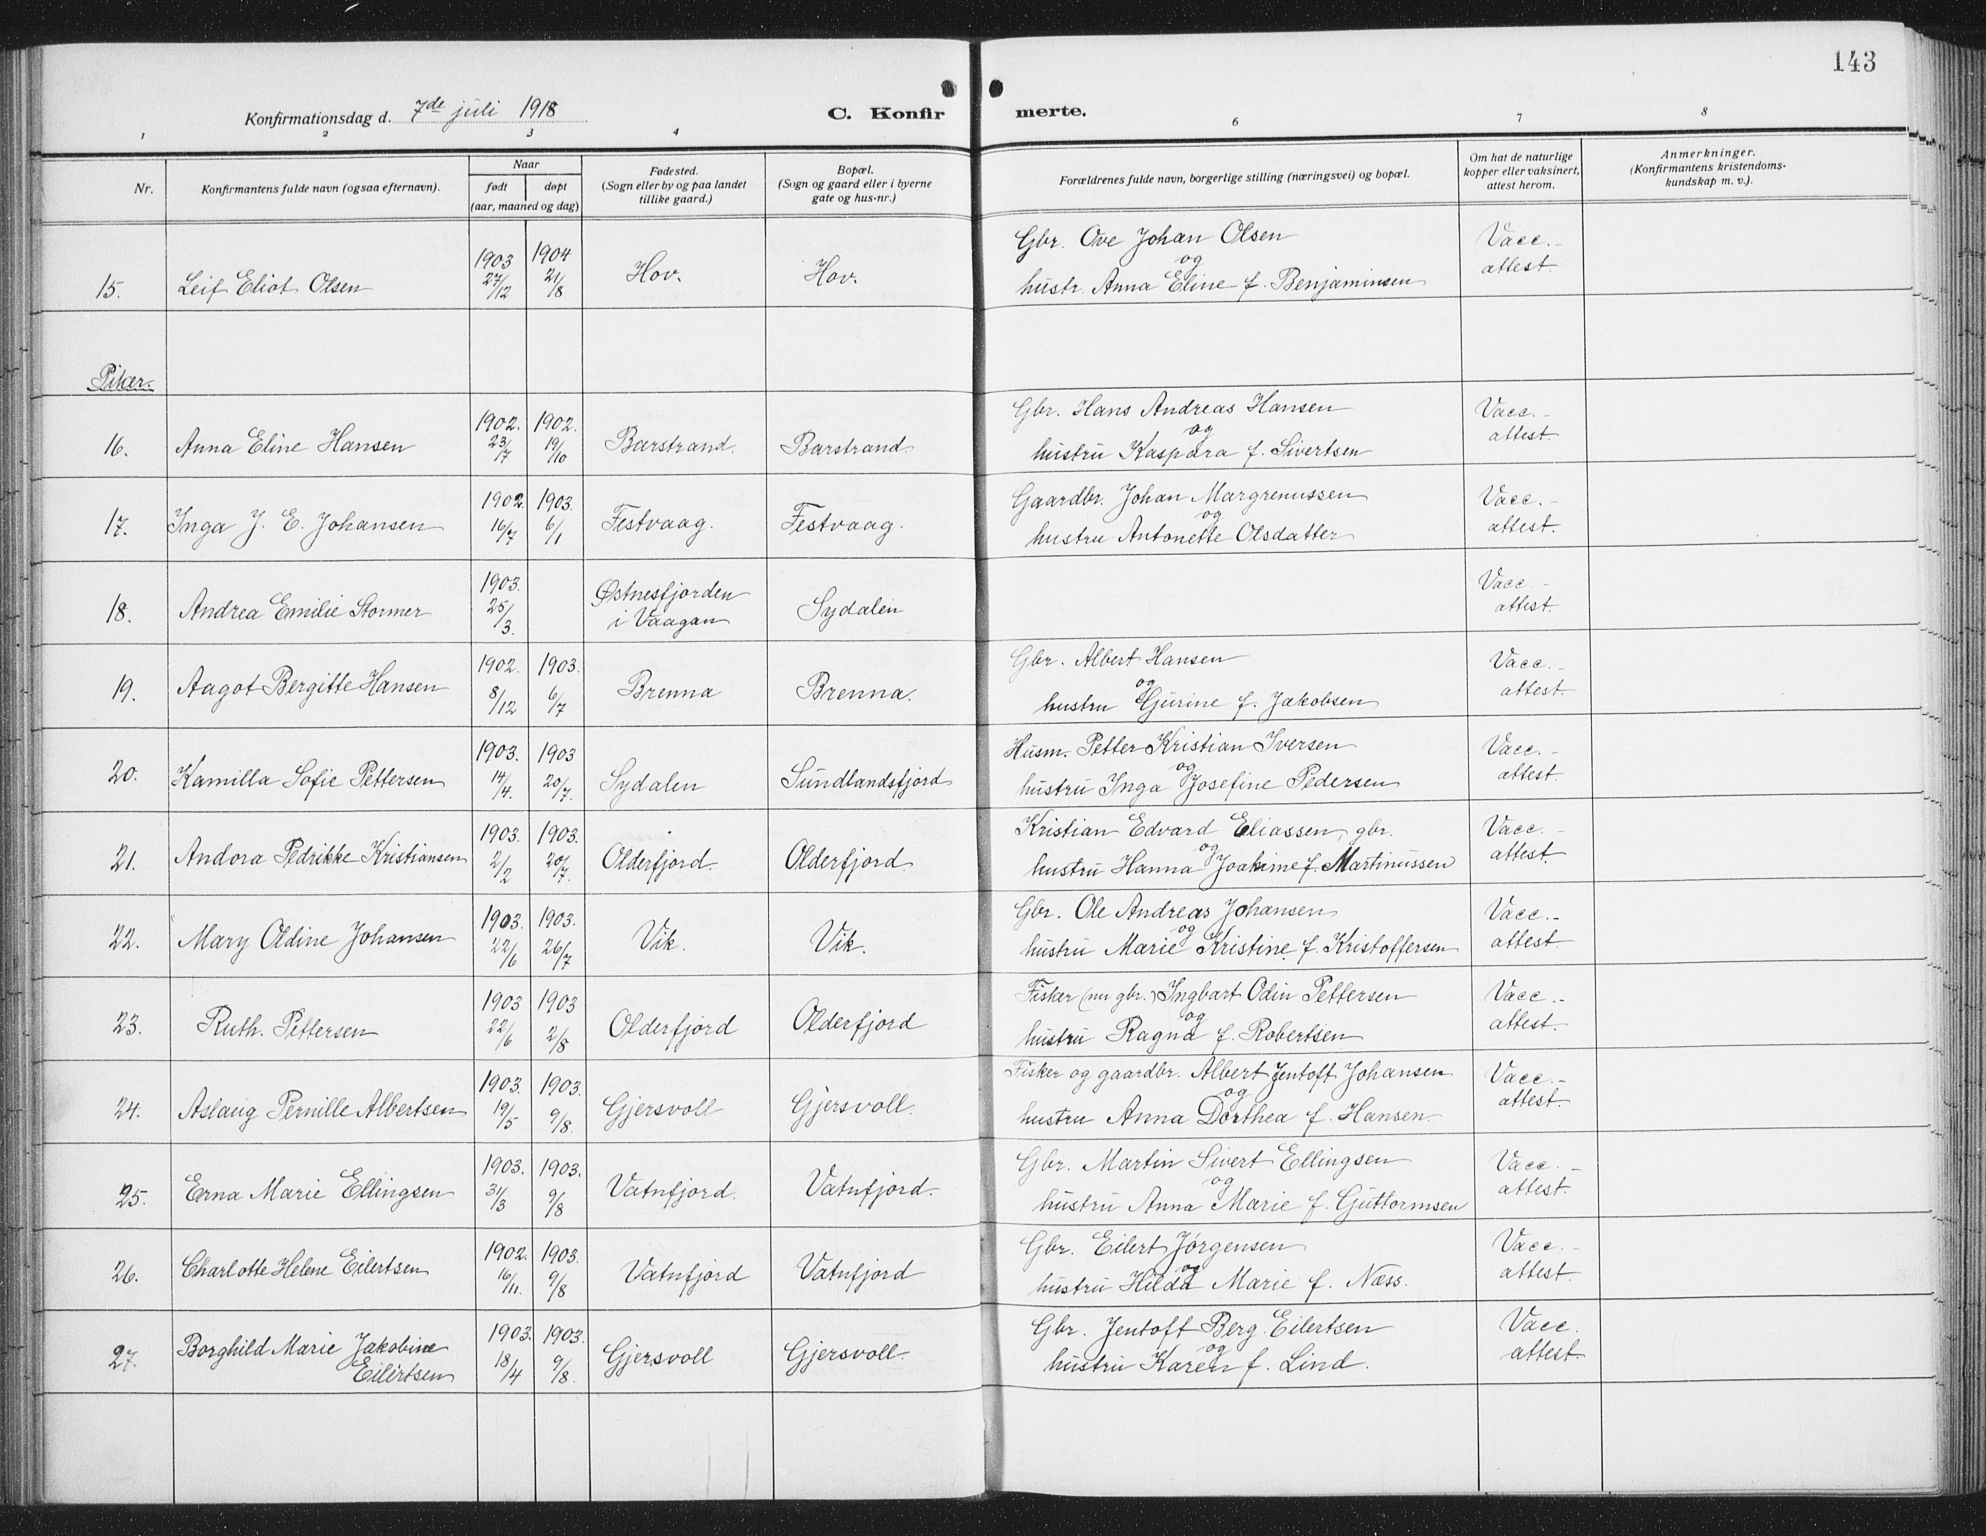 143
Konfirmationsdag d. 7de juli 1918
C. Konfirmerte.
1 2 3 4 6 7 8
Nr.
Konfirmantens fulde navn (ogsaa efternavn).
Naar
født døpt
(aar, maaned og dag)
Fødested.
(Sogn eller by og paa landet
tillike gaard.)
Bopæl.
(Sogn og gaard eller i byerne
gate og hus-nr.)
Forældrenes fulde navn, borgerlige stilling (næringsvei) og bopæl.
Om hat de naturlige
kopper eller vaksinert,
attest herom.
Anmerkninger.
(Konfirmantens kristendoms-
kundskap m. v.).
15. Leif Eliot Olsen 1903 27/12 1904 21/8 Hov. Hov.
Gbr. Ove Johan Olsen
og
hustr. Anna Eline f. Benjaminsen
Vacc.-
attest.
Piker.
16. Anna Eline Hansen 1902. 23/7 1902. 19/10 Barstrand. Barstrand.
Gbr. Hans Andreas Hansen
og
hustru Kaspara f. Sivertsen
Vacc.-
attest.
17. Inga J. E. Johansen 1902. 16/7 1903. 6/1 Festvaag. Festvaag.
Gaardbr. Johan Margrenussen
og
hustru Antonette Olsdatter
Vacc.-
attest.
18. Andrea Emilie Stormer 1903. 25/3. Østnesfjorden
i Vaagan Sydalen
Vacc.-
attest.
19. Aagot Bergitte Hansen 1902. 8/12 1903. 6/7 Brenna Brenna.
Gbr. Albert Hansen
og
hustru Gurine f. Jakobsen
Vacc.-
attest.
20. Kamilla Sofie Pettersen 1903. 14/4. 1903 20/7. Sydalen Sundlandsfjord
Husm. Petter Kristian Iversen
og
hustru Inga Josefine Pedersen
Vacc.-
attest.
21. Andora Pedrikke Kristiansen 1903. 2/2 1903. 20/7. Olderfjord. Olderfjord.
Kristian Edvard Eliassen, gbr.
og
hustru Hanna Joakime f. Martinussen
Vacc.-
attest.
22. Mary Oldine Johansen 1903. 22/6 1903. 26/7 Vik. Vik.
Gbr. Ole Andreas Johansen
og
hustru Marie Kristine f. Kristoffersen
Vacc.-
attest.
23. Ruth. Pettersen 1903 22/6 1903 2/8 Olderfjord Olderfjord
Fisker (nu gbr.) Ingbart Odin Pettersen
og
hustru Ragna f. Robertsen
Vacc.-
attest.
24. Aslaug Pernille Albertsen 1903. 19/5 1903. 9/8. Gjersvoll Gjersvoll.
Fisker og gaardbr. Albert Jentoft Johansen
og
hustru Anna Dorthea f. Hansen.
Vacc.-
attest.
25. Erna Marie Ellingsen 1903. 31/3 1903. 9/8 Vatnfjord. Vatnfjord.
Gbr. Martin Sivert Ellingsen
og
hustru Anna Marie f. Guttormsen
Vacc.-
attest.
26. Charlotte Helene Eilertsen 1902. 16/11. 1903. 9/8 Vatnfjord Vatnfjord
Gbr. Eilert Jørgensen
og
hustru Hilda Marie f. Næss.
Vacc.-
attest.
27. Borghild Marie Jakobine
Eilertsen 1903. 18/4 1903. 9/8. Gjersvoll Gjersvoll.
Gbr. Jentoft Berg Eilertsen
og
hustru Karen f. Lind.
Vacc.
attest.